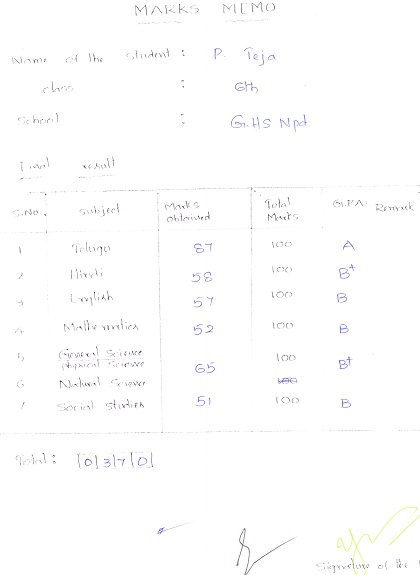 MARKS MEMO
Name of the student : P. Teja
class : 6th
School : G.HS Npd
Final result
S.No. Subject Marks obtained Total Marks G.P.A. Remark
1 Telugu 87 100 A
2 Hindi 58 100 B+
3 English 57 100 B
4 Mathematics 52 100 B
5 General Science
Physical Science 65 100 B+
6 Natural Science 100
7 Social studies 51 100 B
Total : 0370
Signature of the